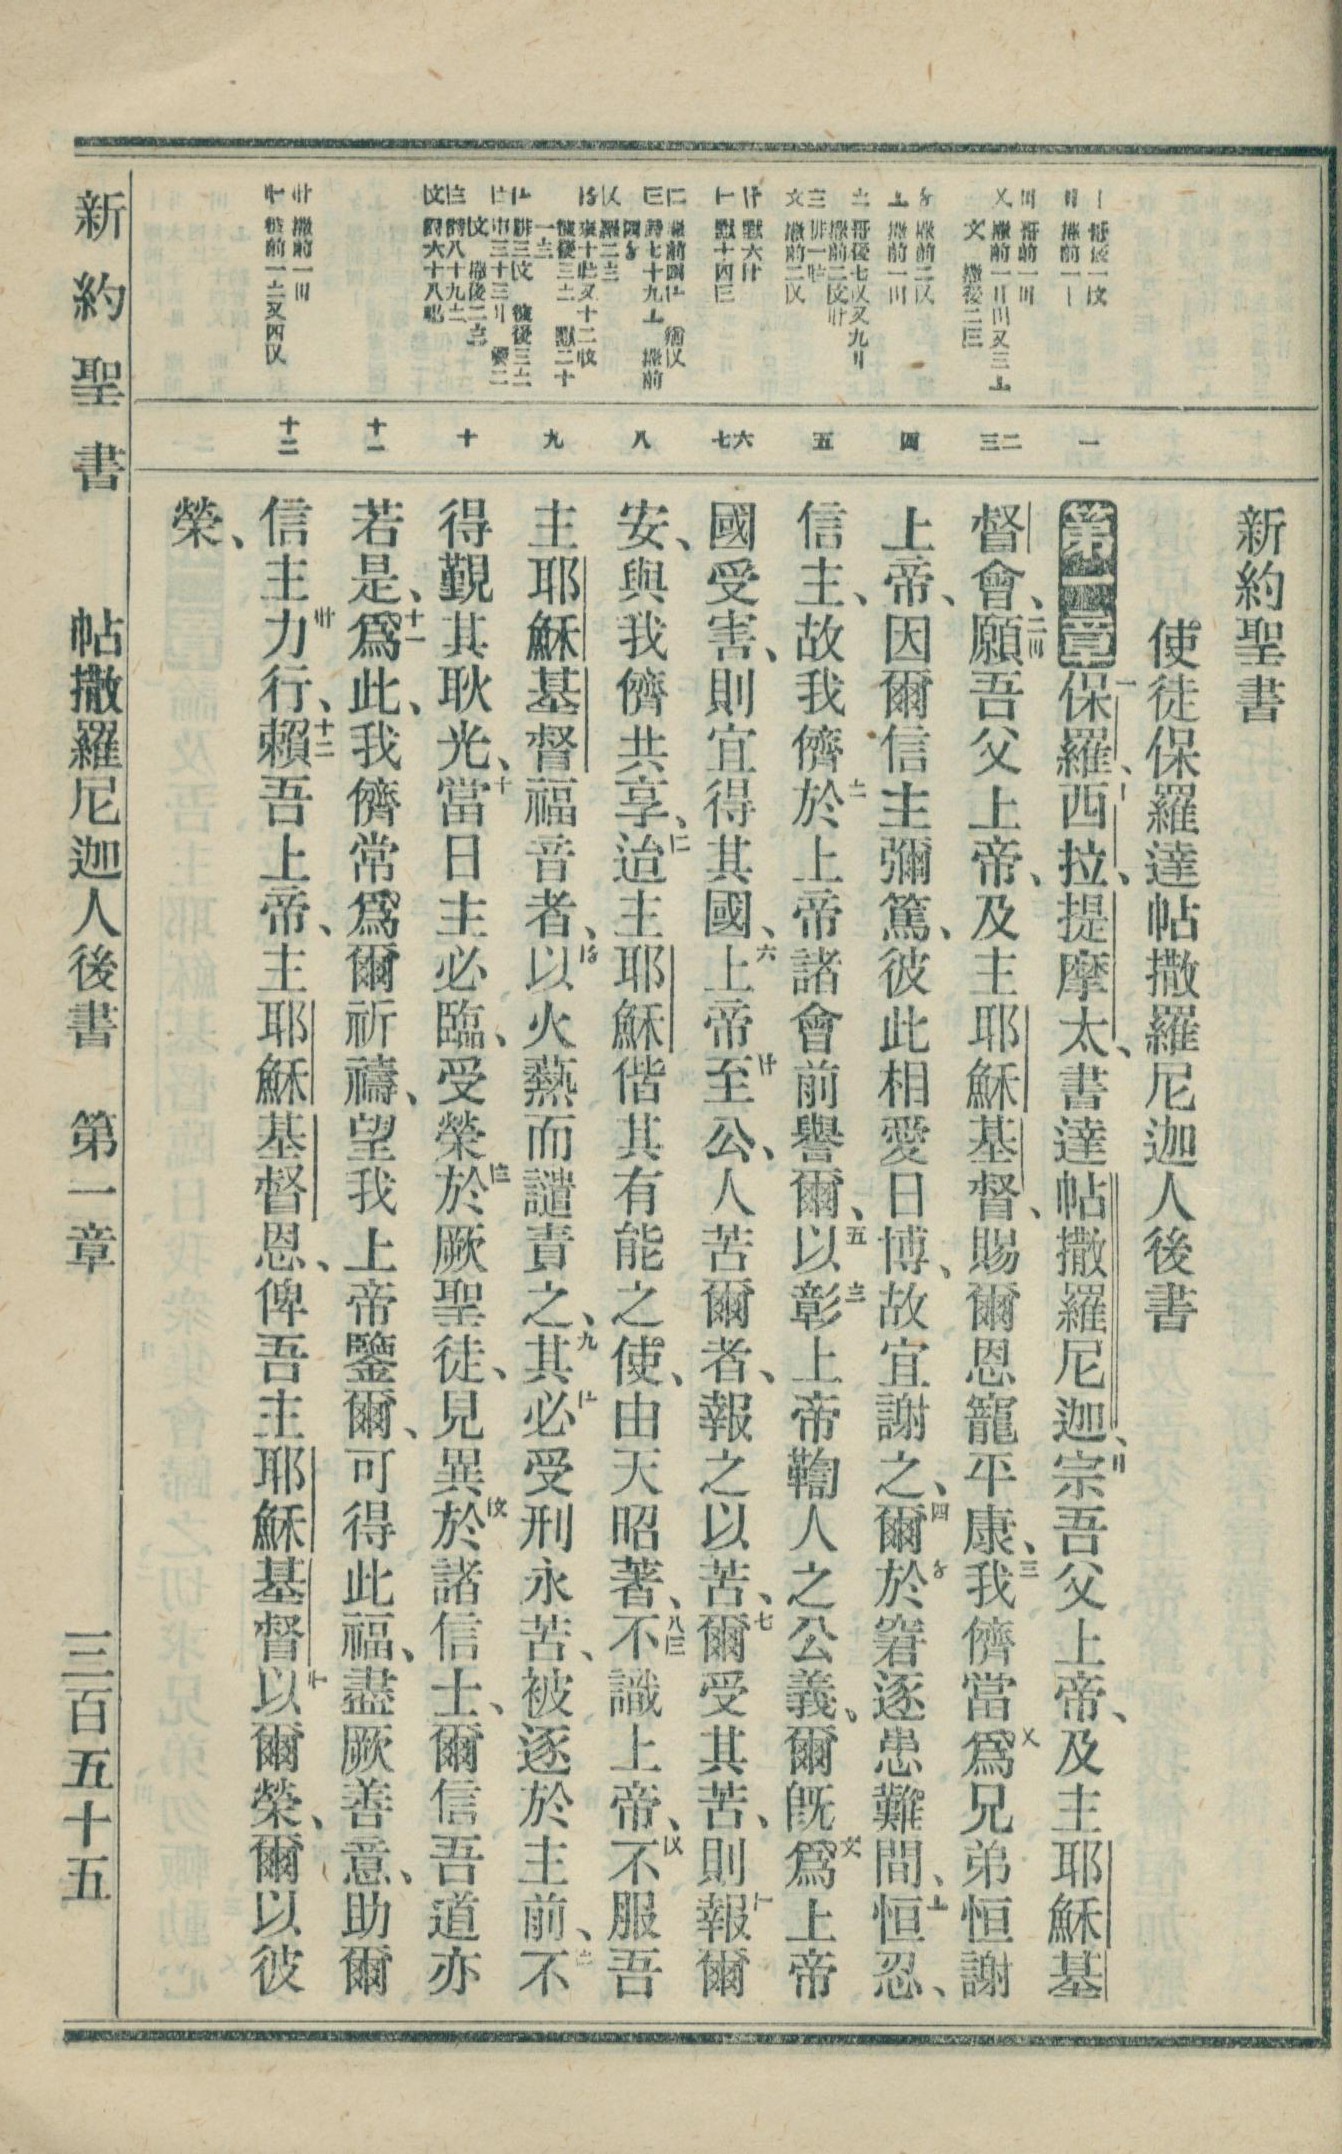 新約聖書
使徒保羅達帖撒羅尼迦人後書
第一章 一保羅、西拉、提摩太、書達帖撒羅尼迦、宗吾父上帝、及主耶穌基
督會、二願吾父上帝、及主耶穌基督、賜爾恩寵平康、三我儕當爲兄弟恒謝
上帝、因爾信主彌篤、彼此相愛日博、故宜謝之、四爾於窘逐患難間、恒忍、
信主、故我儕於上帝諸會前譽爾、五以彰上帝鞫人之公義、爾旣爲上帝
國受害、則宜得其國、六上帝至公、人苦爾者、報之以苦、七爾受其苦、則報爾
安、與我儕共享、迨主耶穌偕其有能之使、由天昭著、八不識上帝、不服吾
主耶穌基督福音者、以火爇而譴責之、九其必受刑永苦、被逐於主前、不
得覲其耿光、十當日主必臨、受榮於厥聖徒、見異於諸信士、爾信吾道亦
若是、十一爲此、我儕常爲爾祈禱、望我上帝鑒爾、可得此福、盡厥善意、助爾
信主力行、十二賴吾上帝、主耶穌基督恩、俾吾主耶穌基督以爾榮、爾以彼
榮、
一
二
三
四
五
六
七
八
九
十
十一
十二
新約聖書 帖撒羅尼迦人後書 第一章 三百五十五